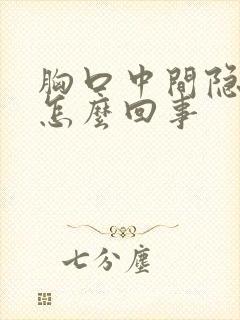 胸口中間隐
怎麽回事
七分塵